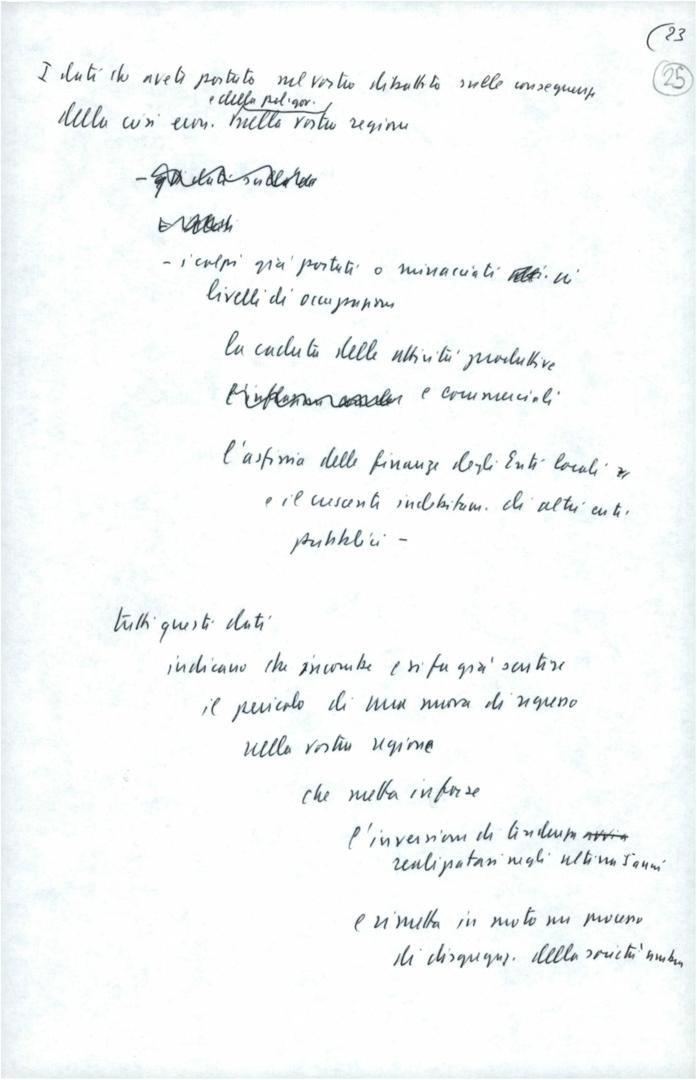 23
25
I dati che avete portato nel vostro dibattito sulle conseguenze
e della pol. gov.
della crisi econ. nella vostra regione
- i colpi già portati o minacciati ai
livelli di occupazione
la caduta delle attività produttive
e commerciali
l'asfissia delle finanze degli Enti locali
e il crescente indebitam. di altri enti
pubblici -
tutti questi dati
indicano che incombe e si fa già sentire
il pericolo di una nuova di regresso
nella vostra regione
che metta in forse
l'inversione di tendenza
negli ultimi 5 anni
e rimetta in moto un processo
di disgregaz. della società umbra